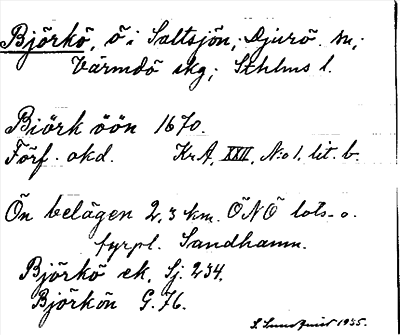 Björkö, ö i Saltsjön, Djurö sn,
Värmdö skg, Sthlms l.
Biörk öön 1670.
Förf. okd. KrA, XXII, No 1. lit. b.
Ön belägen 2,3 km. ÖNÖ lots- o.
fyrpl. Sandhamn.
Björkö ek. Sj. 234.
Björkön G. 76.
S. Lundquist 1935.